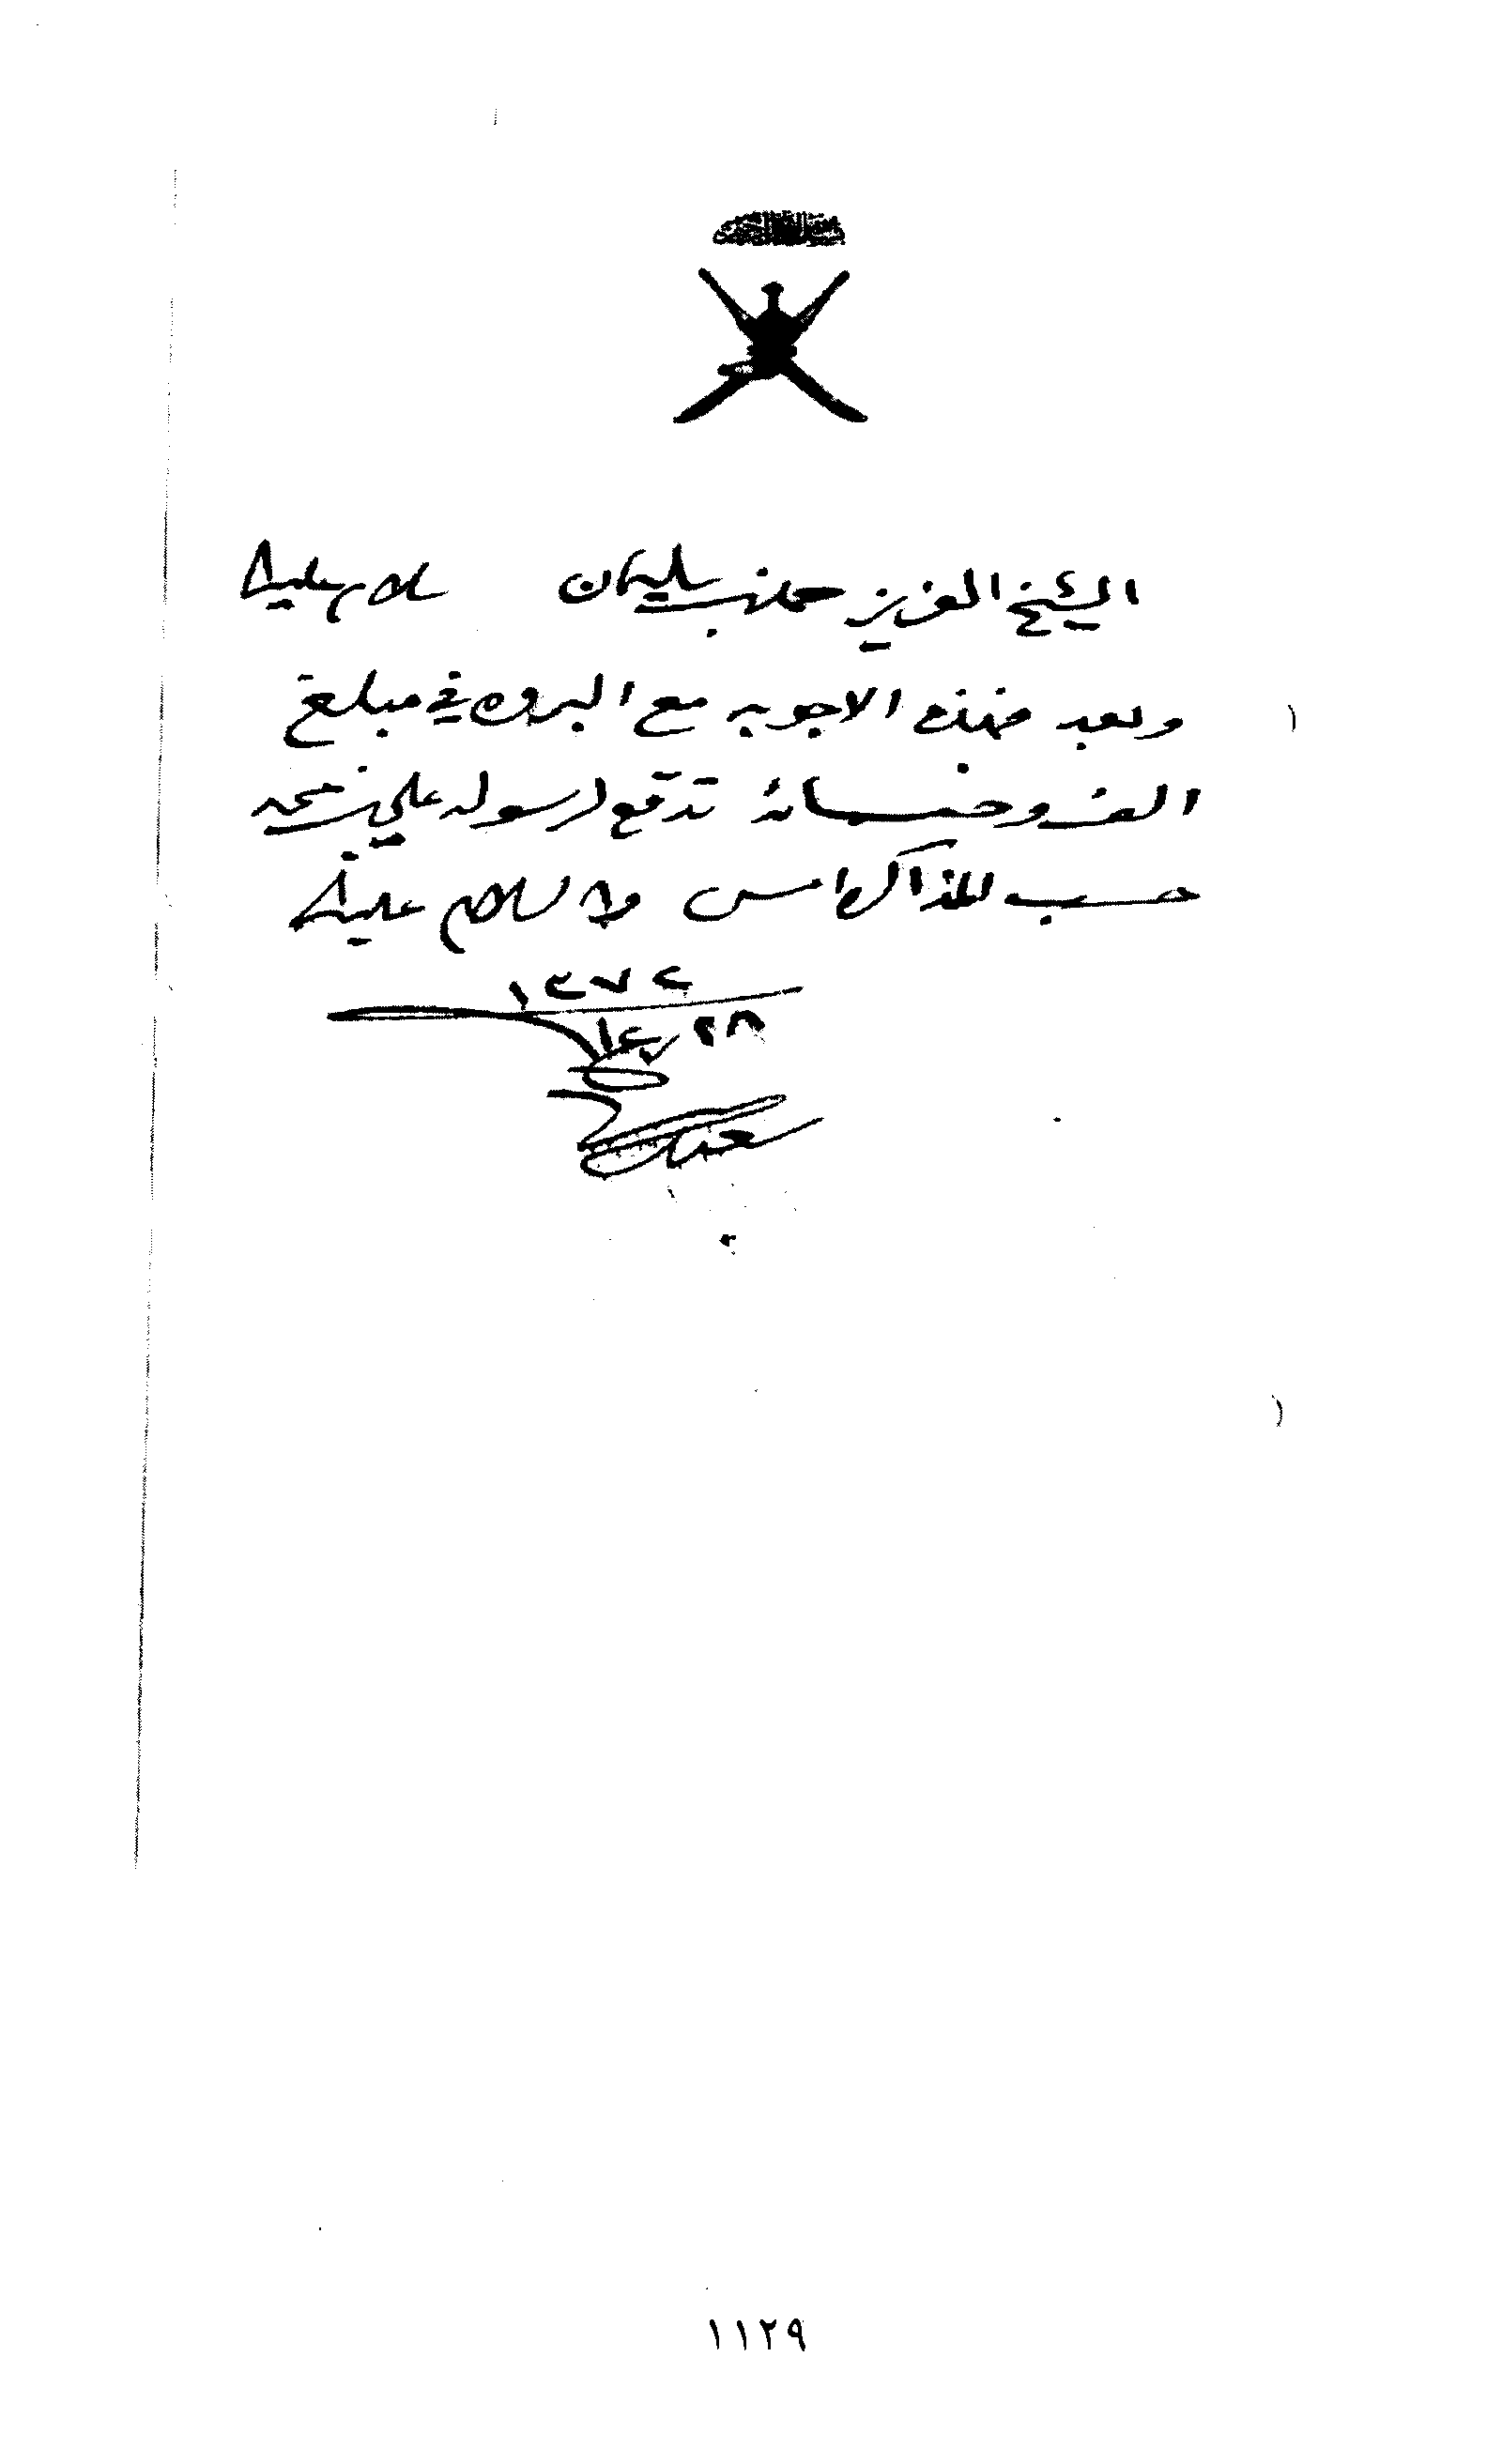 الشيخ العزيز حمد بن سليمان سلام عليك
وبعد فهذه الاجوبه مع البروه في مبلغ
الف وخمسمائة تدفع لرسوله علي بن محمد
حسب المذاكره امس والسلام عليك
١٣٧٤
٢٨
سعيد
١١٢٩